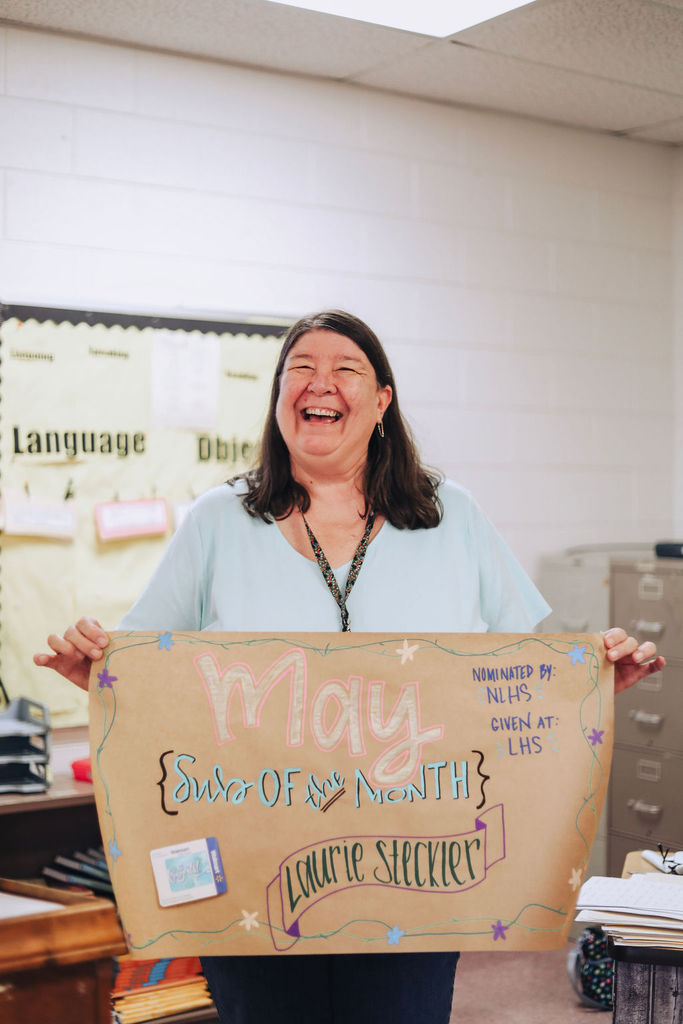 Language Objec
May
NOMINATED BY:
NLHS
GIVEN AT:
LHS
{Sub OF the MONTH}
Laurie Steckler
Walmart